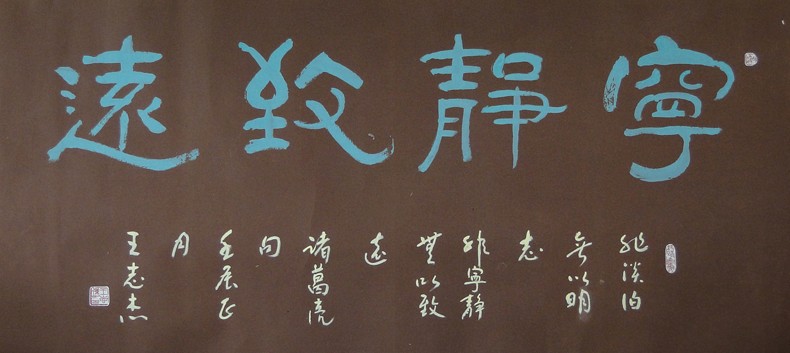 寧靜致遠
非淡泊
無以明
志
非寧靜
無以致
遠
諸葛亮
句
壬辰正
月
王志杰